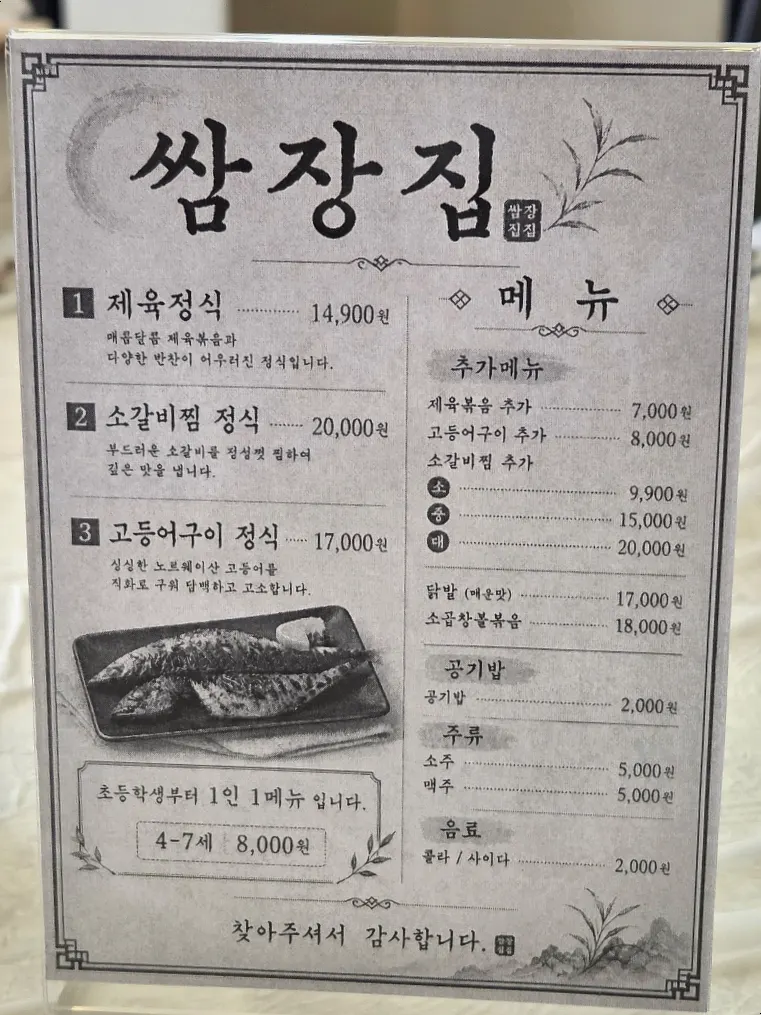 쌈장집
쌈장
집집
1 제육정식 14,900원
매콤달콤 제육볶음과
다양한 반찬이 어우러진 정식입니다.
2 소갈비찜 정식 20,000원
부드러운 소갈비를 정성껏 찜하여
깊은 맛을 냅니다.
3 고등어구이 정식 17,000원
싱싱한 노르웨이산 고등어를
직화로 구워 담백하고 고소합니다.
초등학생부터 1인 1메뉴 입니다.
4-7세 8,000원
메뉴
추가메뉴
제육볶음 추가 7,000원
고등어구이 추가 8,000원
소갈비찜 추가
소 9,900원
중 15,000원
대 20,000원
닭발 (매운맛) 17,000원
소곱창볼볶음 18,000원
공기밥
공기밥 2,000원
주류
소주 5,000원
맥주 5,000원
음료
콜라 / 사이다 2,000원
찾아주셔서 감사합니다.